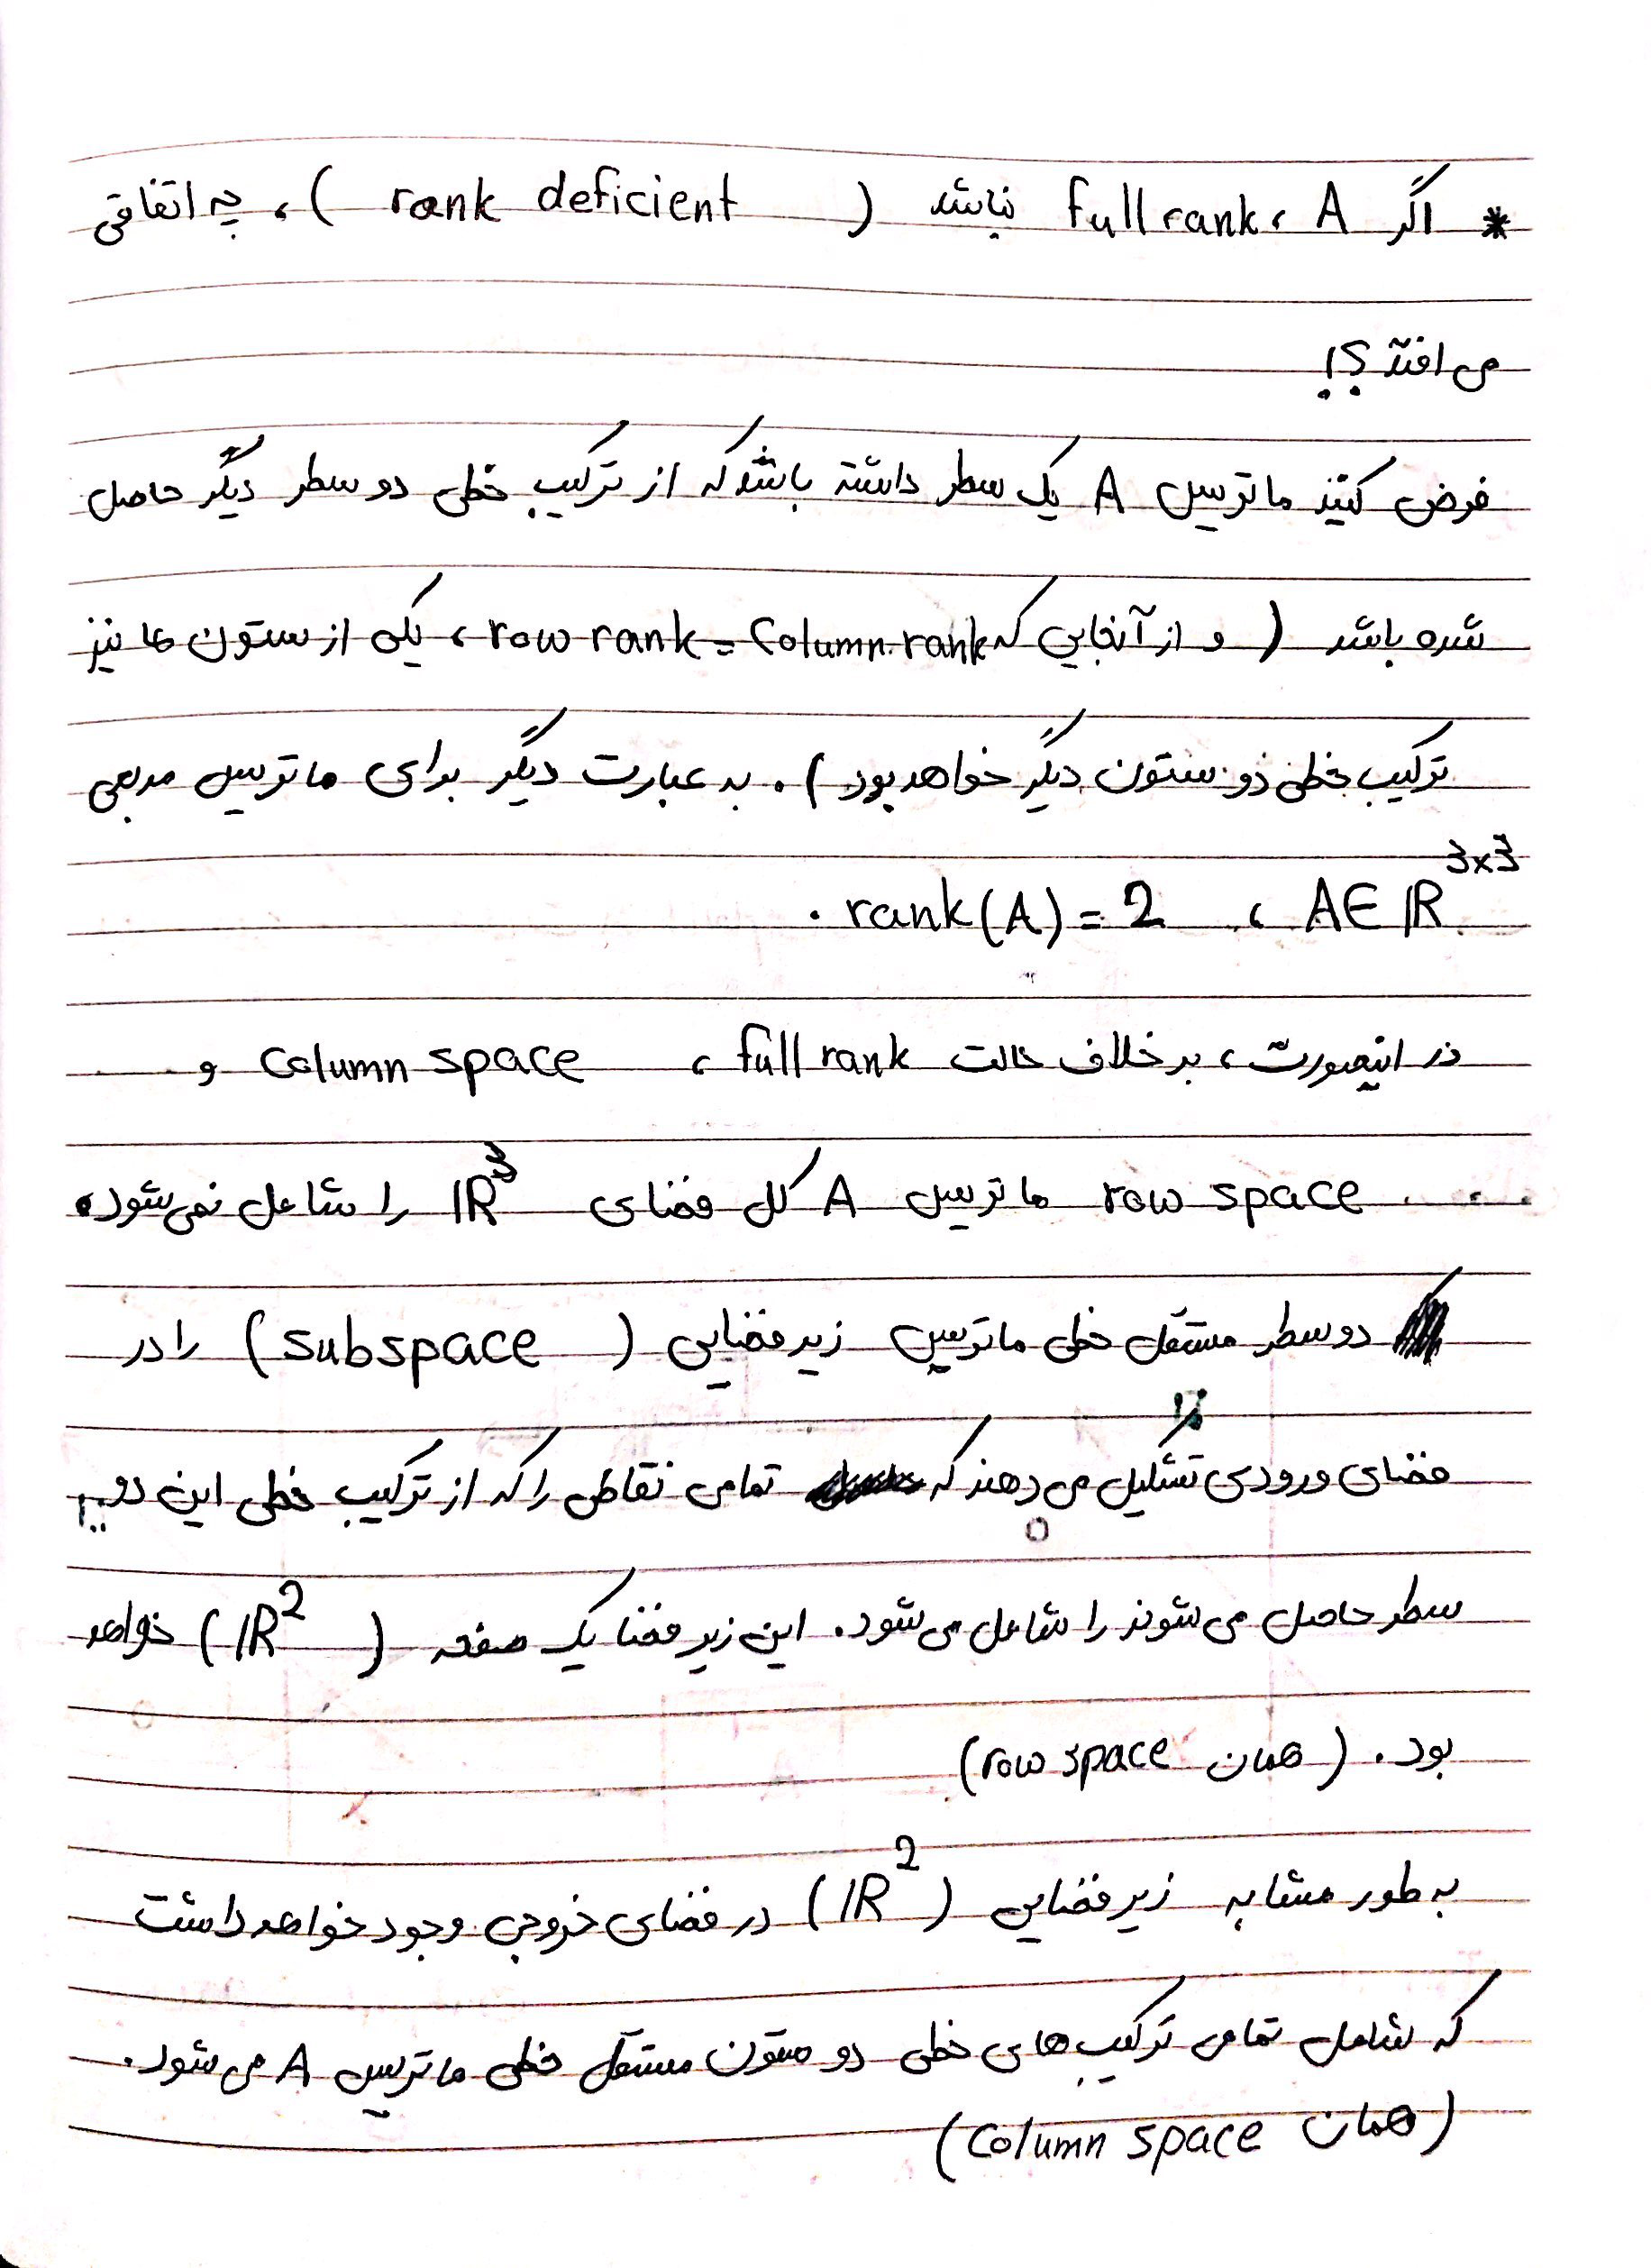 * اگر A ، full rank نباشد ( rank deficient ) ، چه اتفاقی
می افتد ؟!
فرض کنید ماتریس A یک سطر داشته باشد که از ترکیب خطی دو سطر دیگر حاصل
شده باشد ( و از آنجایی که row rank = Column rank ، یکی از ستون ها نیز
ترکیب خطی دو ستون دیگر خواهد بود ) . به عبارت دیگر برای ماتریس مربعی
A ∈ ℝ^{3×3} ، rank(A) = 2 .
در اینصورت ، بر خلاف حالت full rank ، Column space و
row space ماتریس A کل فضای ℝ³ را شامل نمی شود .
دو سطر مستقل خطی ماتریس زیرفضایی ( subspace ) را در
فضای ورودی تشکیل می دهند که تمامی نقاطی را که از ترکیب خطی این دو
سطر حاصل می شوند را شامل می شود . این زیرفضا یک صفحه ( ℝ² ) خواهد
بود . ( همان row space )
به طور مشابه زیرفضایی ( ℝ² ) در فضای خروجی وجود خواهد داشت
که شامل تمامی ترکیب های خطی دو ستون مستقل خطی ماتریس A می شود .
( همان Column space )